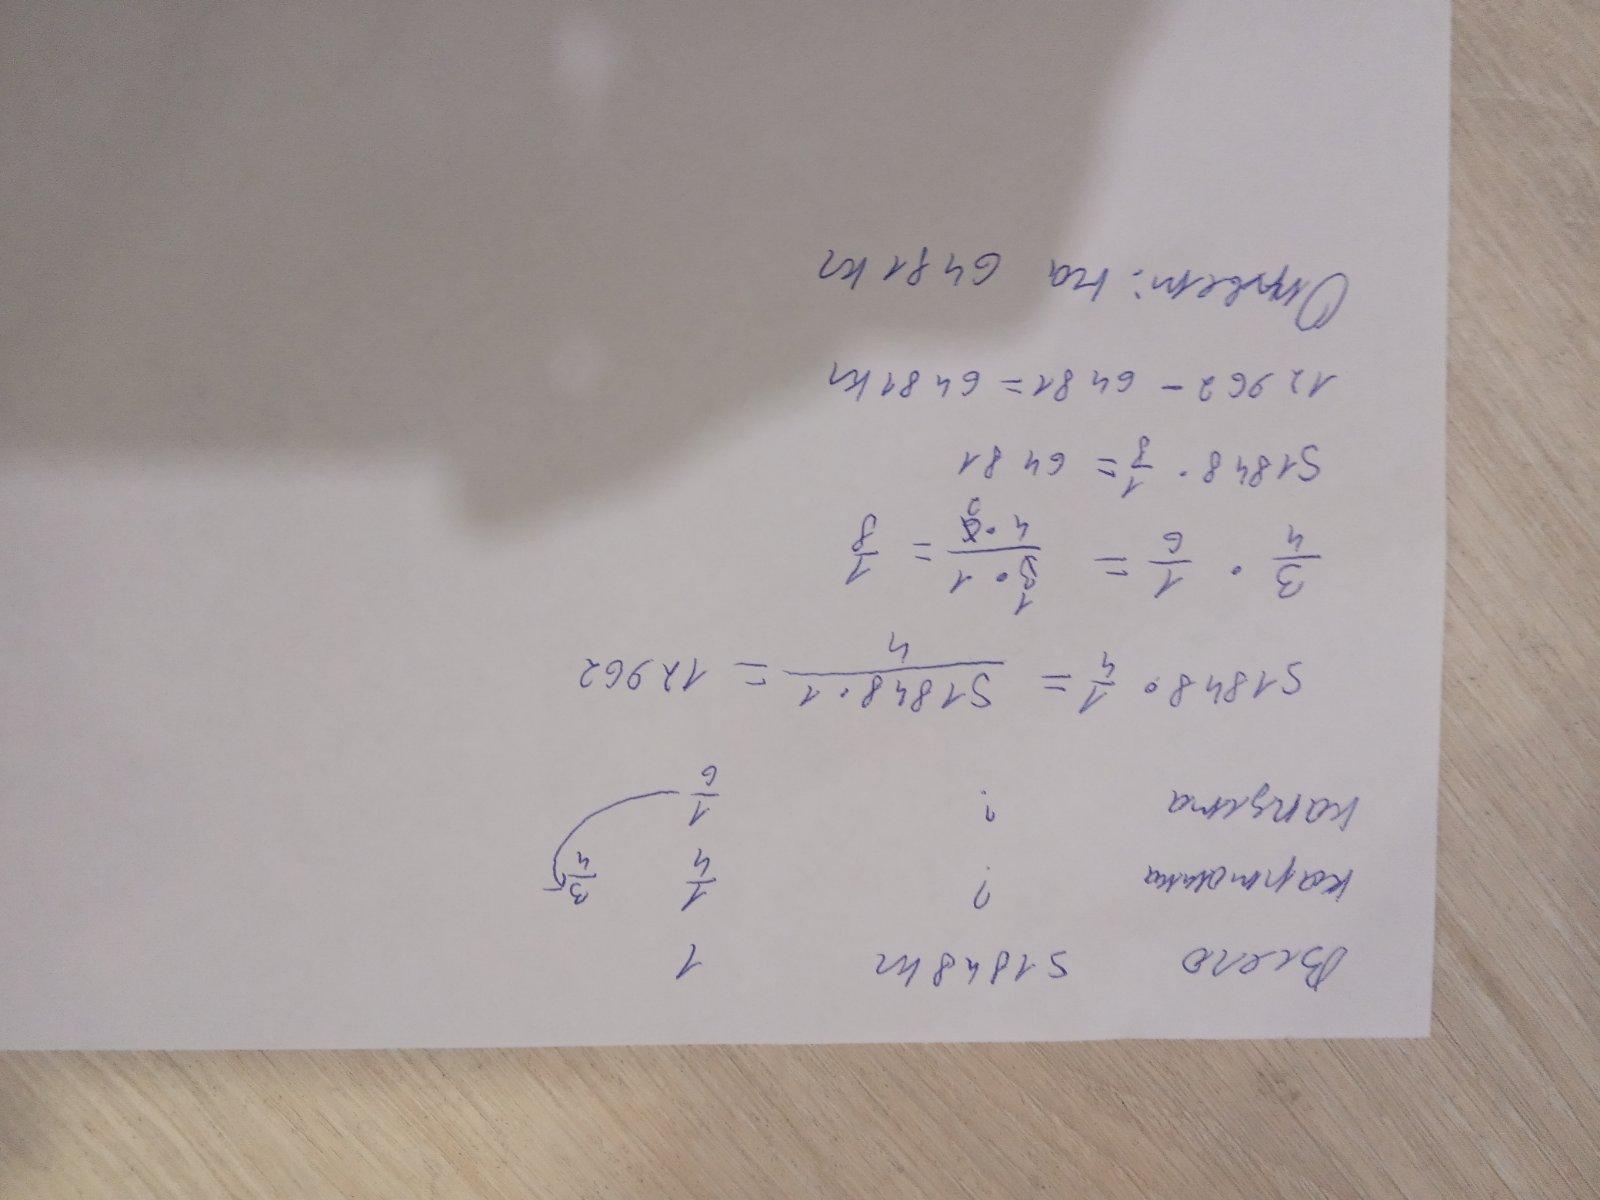 Всего 51848 кг 1
картошка ? 1/4 3/4
капуста ? 1/6
51848 · 1/4 = 51848·1/4 = 12962
3/4 · 1/6 = 3·1/4·6 1 2 = 1/8
51848 · 1/8 = 6481
12962 - 6481 = 6481 кг
Ответ: на 6481 кг